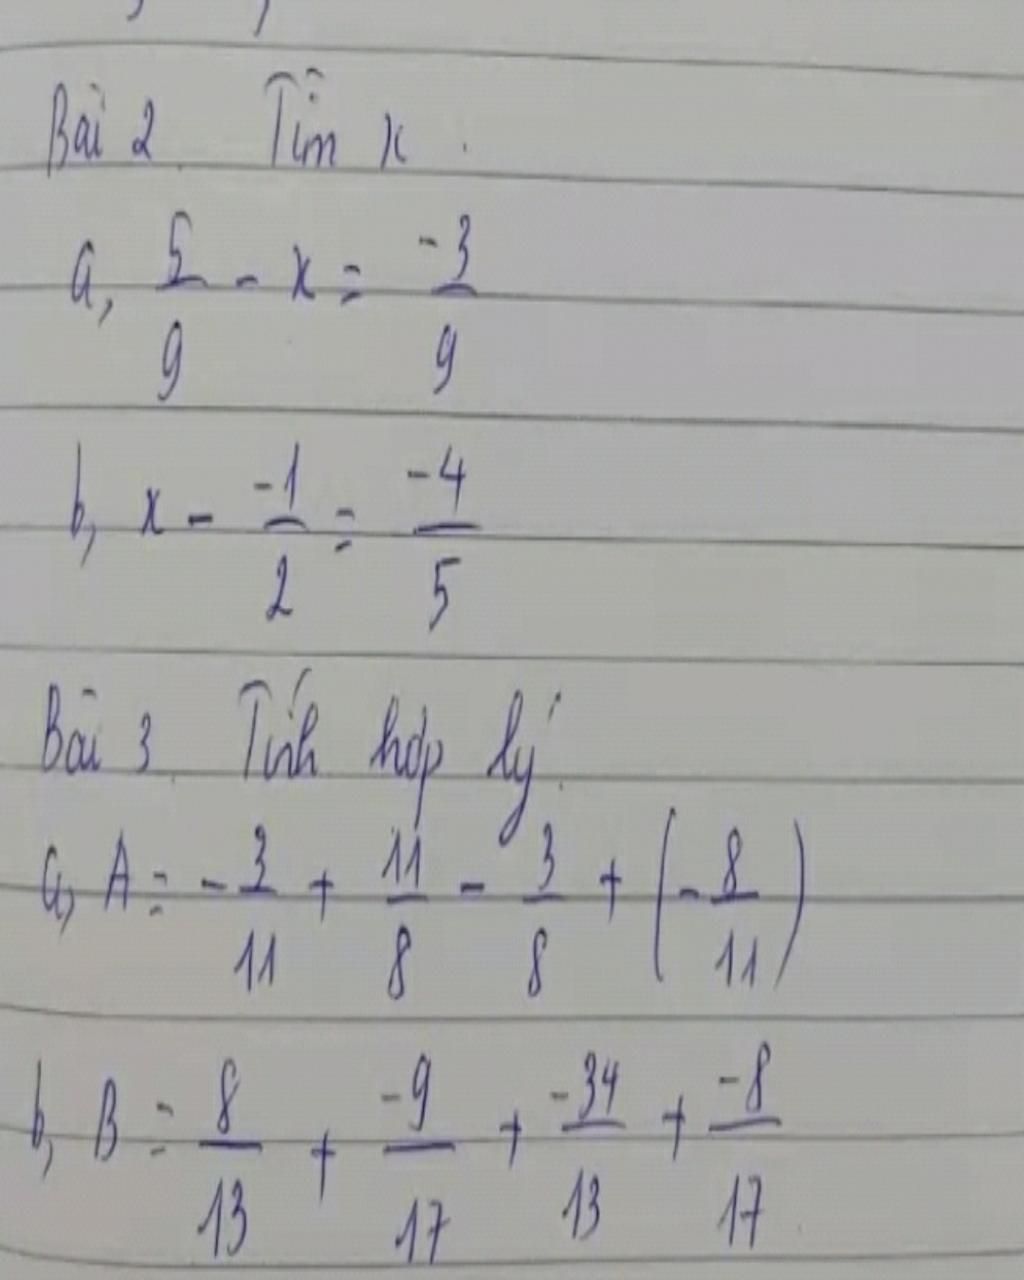 Bài 2 Tìm x.
a, 5/9 - x = -3/9
b, x - -1/2 = -4/5
Bài 3 Tính hợp lý.
a, A = - 3/11 + 11/8 - 3/8 + (- 8/11)
b, B = 8/13 + -9/17 + -34/13 + -8/17